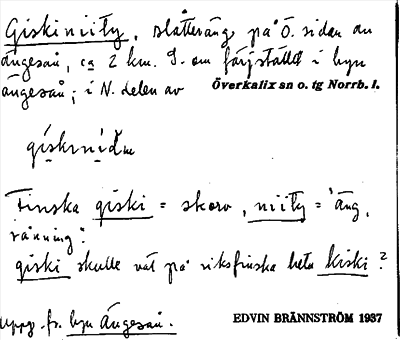 Giskiniity, slåtteräng på Ö. sidan av
ängesån, ca 2 km. S. om färjställd i byn
ängesån; i N. delen av Överkalix sn o. tg Norrb. l.
Finska giski = skorv, niity = 'äng,
giski skulle väl på riksfinska heta kiski?
Uppg. fr. byn Ängesån.
EDVIN BRÄNNSTRÖM 1937